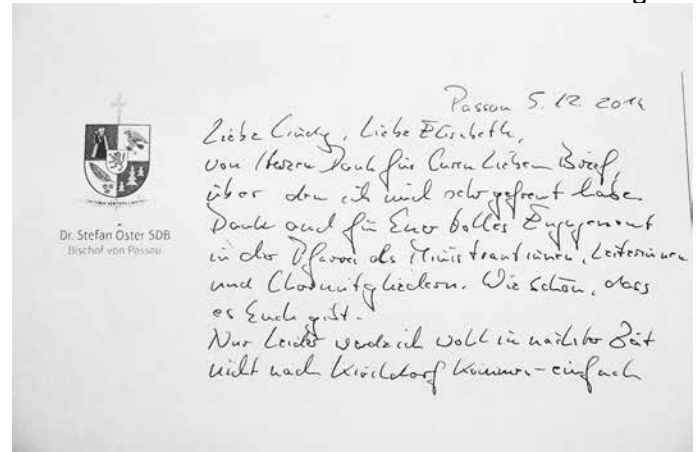 Dr. Stefan Oster SDB
Bischof von Passau
Passau 5.12.2014
Liebe Cindy, Liebe Elisabeth,
von Herzen Dank für Euren Lieben Brief,
über den ich mich sehr gefreut habe.
Danke auch für Euer tolles Engagement
in der Pfarrei als Ministrantinnen, Leiterinnen
und Chormitgliedern. Wie schön, dass
es Euch gibt.
Nur leider werde ich wohl in nächster Zeit
nicht nach Kirchdorf kommen - einfach